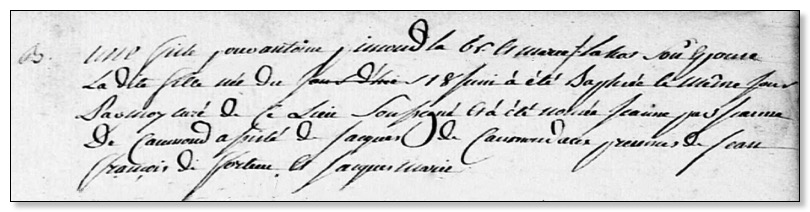 B. une fille pour antoine simond la br et marie son Epouse
La dite fille née du jour d'hier 18 juin à été Baptisée le même jour
Par moy curé de ce Lieu soussigné et à été nomée jeanne par jeanne
De Caumond assisté de jacques de Caumond aux presences de jean
françois de et jacques marie